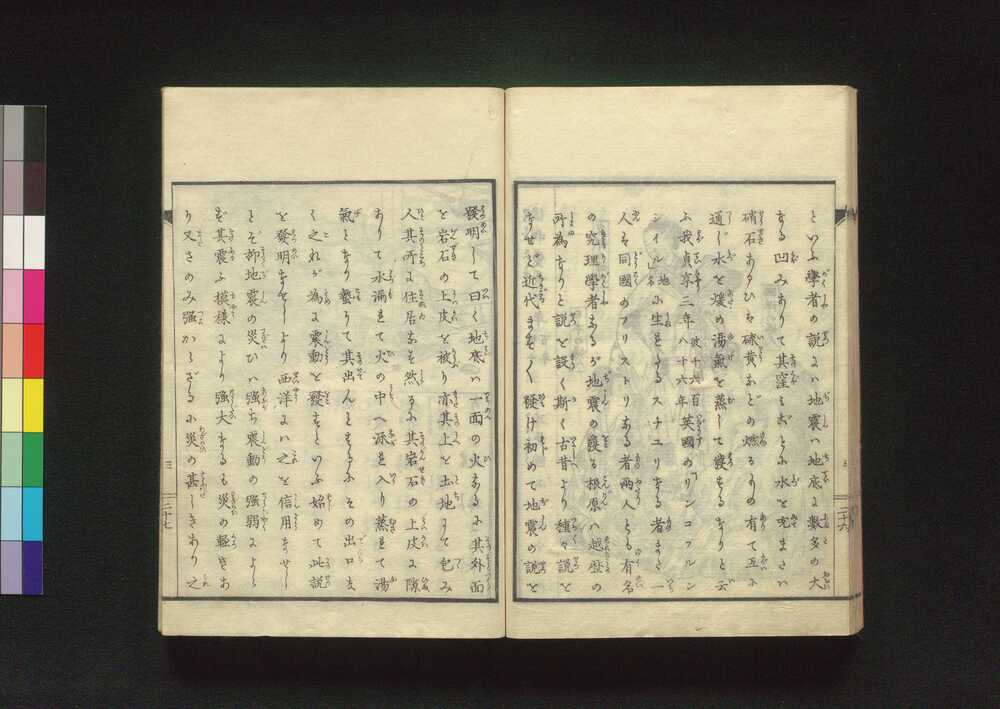 といふ學者の説には地震ハ地底に數多の大
なる凹みありて其窪ミぶとふ水を充まさい
硝石あるひは硫黄などの燃るもの有て互ふ
通じ水を煖め湯氣を蒸して發するなりと云
ふ我貞享三年彼千六百八十六年英國のリンコフルン
シイル地名に生をるスナユリなる者また一
人は同國のフリストリなる者兩人とも有名
の究理學者なるが地震の發る根原ハ越歴の
所為なりと説を設く斯く古昔より種々説を
なせど近代ますく發け初めて地震の説を
三 二十六
發明して曰く地底ハ一面の火なるに其外面
を岩石の上皮を被り亦其上を土地にて包み
人其所に住居なせ然るに其岩石の上皮に隙
ありて水漏れて火の中へ流れ入り蒸て湯
氣となり騰りて其出んとするふその出口な
く之れが為に震動を發すといふ始めて此説
を發明なせしより西洋にハ之を信用なせし
とぞ抑地震の災ひハ強ち震動の強弱によら
ず其震ふ模様により強大なるも災の輕きあ
り又さのみ強からざるふ災の甚しきあり之
三 二十七